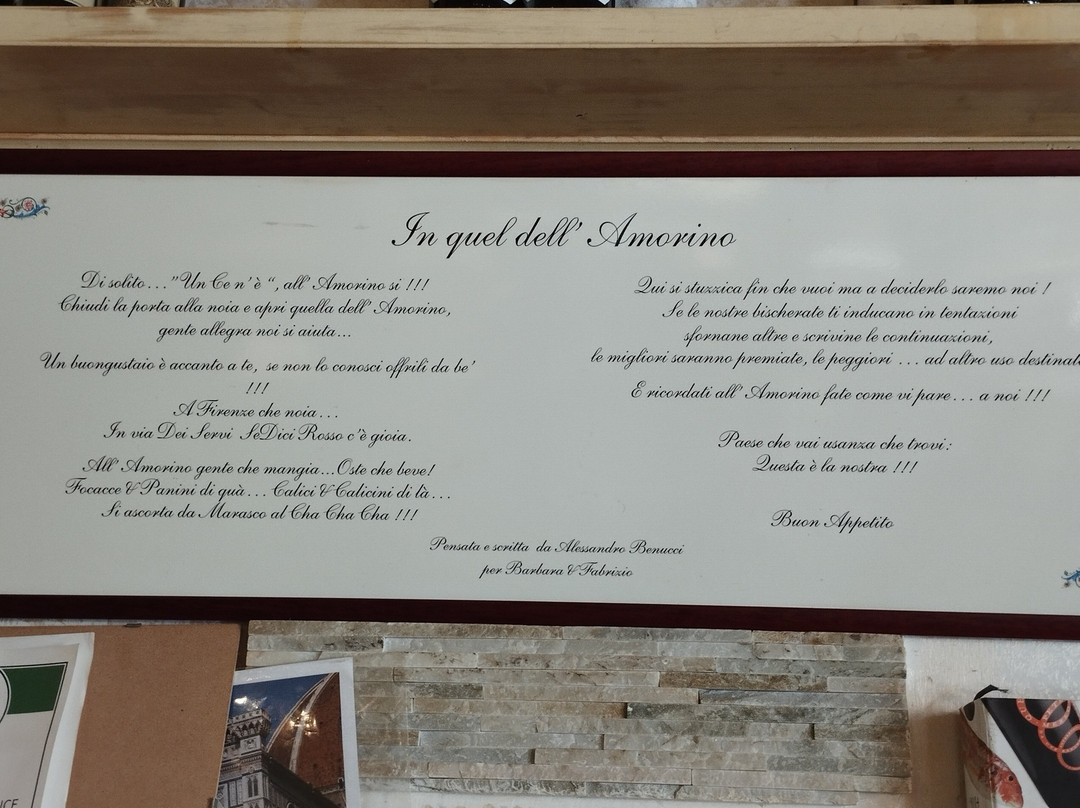 In quel dell' Amorino
Di solito..."Un Ce n'è ", all' Amorino si !!!
Chiudi la porta alla noia e apri quella dell' Amorino,
gente allegra noi si aiuta...
Un buongustaio è accanto a te, se non lo conosci offrili da be'
!!!
A Firenze che noia...
In via Dei Servi SeDici Rosso c'è gioia.
All' Amorino gente che mangia...Oste che beve!
Focacce & Panini di quà... Calici & Calicini di là...
Si ascorta da Marasco al Cha Cha Cha !!!
Qui si stuzzica fin che vuoi ma a deciderlo saremo noi !
Se le nostre bischerate ti inducano in tentazioni
sfornane altre e scrivine le continuazioni,
le migliori saranno premiate, le peggiori ... ad altro uso destinat
E ricordati all' Amorino fate come vi pare... a noi !!!
Paese che vai usanza che trovi:
Questa è la nostra !!!
Buon Appetito
Pensata e scritta da Alessandro Benucci
per Barbara & Fabrizio